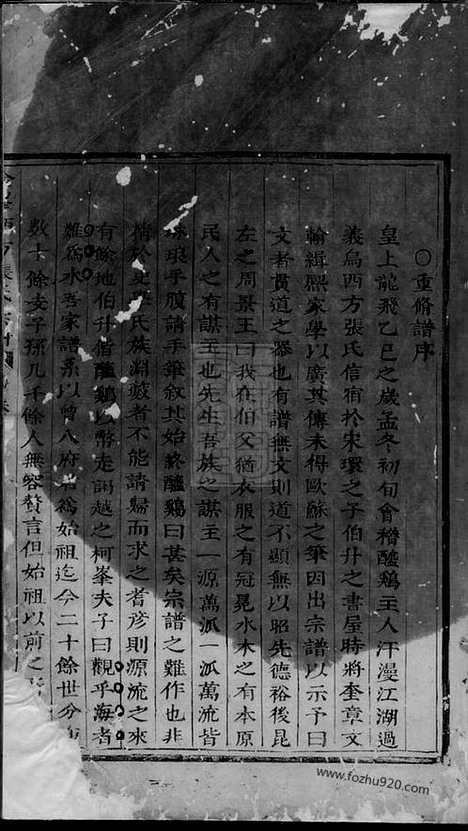 ○重脩譜序
皇上龍飛乙巳之歲孟冬初旬會稽醯鷄主人汗漫江湖過
義烏西方張氏信宿於宋環之子伯升之書屋時將奎章文
翰緝熙家學以廣其傳未得歐蘇之筆因出宗譜以示予曰
文者貫道之器也有譜無文則道不顯無以昭先德裕後昆
左之周景王曰我在伯父猶衣服之有冠冕水木之有本原
民人之有謀主也先生吾族之謀主一源萬派一派萬流皆
琅乎腹請手筆叙其始終醯鷄曰甚矣宗譜之難作也非
精於史氏族淵藪者不能請歸而求之耆彥則源流之來
有餘地伯升偕醯鷄以幣走詞越之柯峯夫子曰觀乎海者
難爲水吾家譜系以曾八府爲始祖迄今二十餘世分
數十餘支子孫几千餘人無容贅言但始祖以前之
www.fozhu920.com